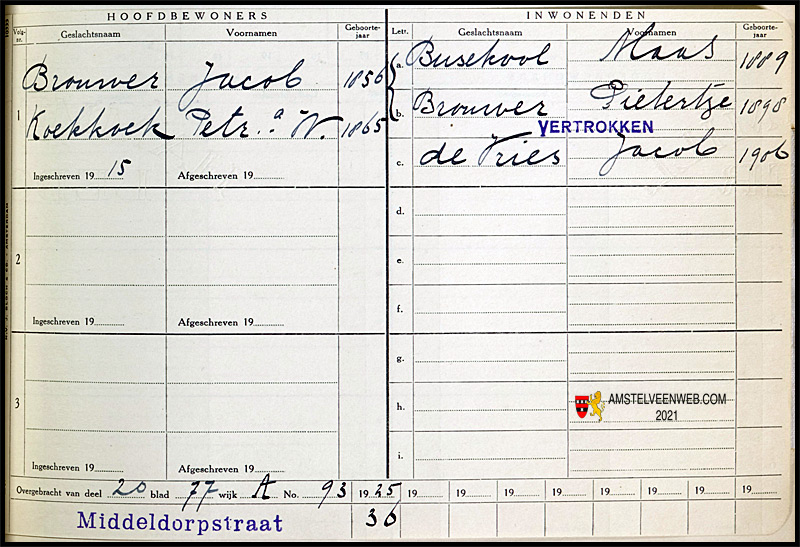 HOOFDBEWONERS
Volg-nr. Geslachtsnaam Voornamen Geboorte-jaar
1
Brouwer Jacob 1856
Koekkoek Petr.a W. 1865
Ingeschreven 19 15 Afgeschreven 19
2
Ingeschreven 19 Afgeschreven 19
3
Ingeschreven 19 Afgeschreven 19
INWONENDEN
Lett. Geslachtsnaam Voornamen Geboorte-jaar
a. Busekool Maas 1889
b. Brouwer Pietertje 1898
VERTROKKEN
c. de Vries Jacob 1906
d.
e.
f.
g.
h.
i.
AMSTELVEENWEB.COM
2021
Overgebracht van deel 20 blad 77 wijk A No. 93 19 25 19 19 19 19 19 19 19 19
Middeldorpstraat 30